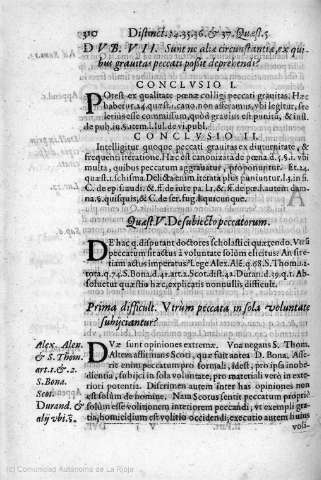 310 Distinct. 34. 35. 36. & 37. Quæst. 5
DVB. VII. Sunt ne aliæ circunstantiæ, ex qui
bus grauitas peccati possit deprehendi?
CONCLVSIO I.
POtest ex qualitate pœnæ colligi peccati grauitas. Hæc
habetur. 24. quæst. 1. cano. non afferamus, vbi legitur, sce
lerius esse commissum, quòd grauius est punitũ, & insti.
de pub. iu. §. item l. Iul. de vi publ.
CONCLVSIO II.
Intelligitur quoque peccati grauitas ex diuturnitate, &
frequenti iteratione. Hæc est canonizata de pœna d. 3. §. 1. vbi
multa, quibus peccatum aggrauatur, proponuntur. Et. 24.
quæst. 1. c. schisma. Delicta etiam iterata plus
C. de epi. & audi. & ff. de iure
na. §. quisquis, & C. de ser. fug. si quicunque.
Quæst. V. De subiecto peccatorum.
DE hac q. disputant doctores scholastici quærendo. Vtrũ
peccatum sit actus à voluntate solùm elicitus? An sit e-
tiam actus imperatus? Lege Alex. Ale. q. 68. S. Thom. a 1
tota. q. 74. S. Bona. d. 41. art. 2. Scot. dist. 42. Durand. 39. q. 1. Ab-
soluetur quæstio hæc, explicatis nonnullis difficult.
Prima difficult. Vtrum peccata in sola voluntate
subijciantur?
Alex. Alen.
& S. Thom.
art. 1. & 2.
S. Bona.
Scot.
Durand. &
alij vbi. §.
DVæ sunt opiniones extremæ. Vna negans S. Thom.
Altera assirmans Scoti, que fait antea D. Bona. Asse-
rit enim peccatum pro formali, idest, pro ipsa inobe-
dientia, subijci in sola voluntate, pro materiali verò in exte-
riori potentia. Discrimen autem inter has opiniones non
est solum de nomine. Nam Scotus sentit peccatum propriè
solùm esse volitionem interiorem peccandi, vt exempli gra-
tia, homicidium est volitio occidendi, executio autem huius
voli-
(c) Comunidad Autónoma de La Rioja